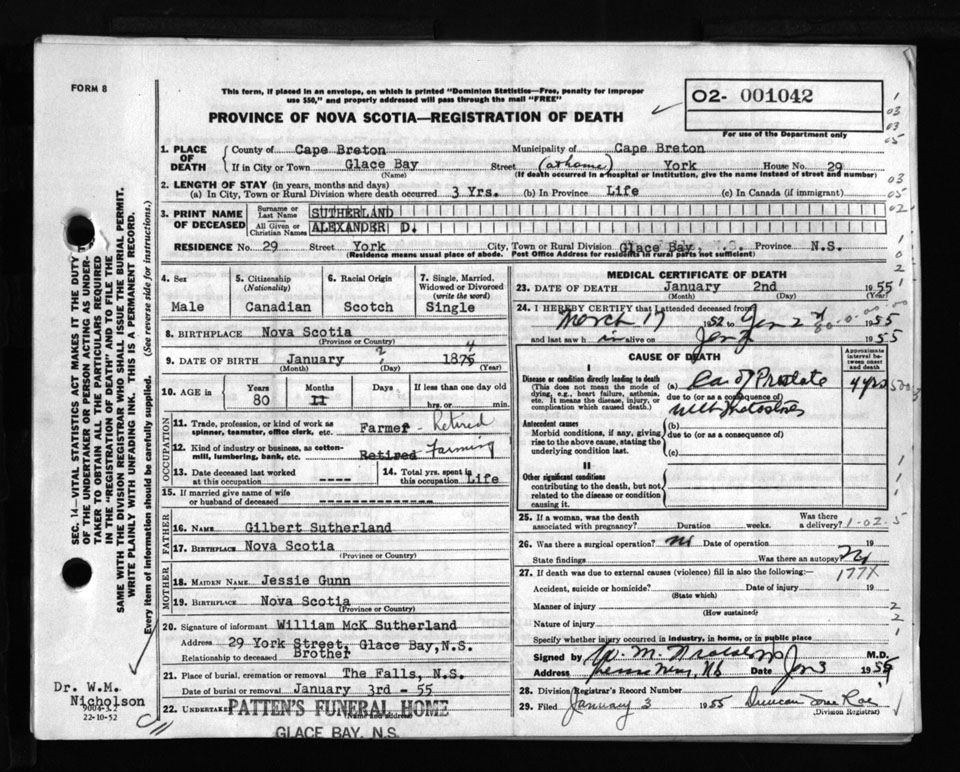 FORM 8
This form, if placed in an envelope, on which is printed "Dominion Statistics—Free, penalty for improper
use $50," and properly addressed will pass through the mail "FREE"
PROVINCE OF NOVA SCOTIA—REGISTRATION OF DEATH
02- 001042
For use of the Department only
1. PLACE OF DEATH
County of Cape Breton Municipality of Cape Breton
If in City or Town Glace Bay Street (at home) York House No. 29
(Name) (If death occurred in a hospital or institution, give the name instead of street and number)
2. LENGTH OF STAY (in years, months and days)
(a) In City, Town or Rural Division where death occurred 3 Yrs. (b) In Province Life (c) In Canada (if immigrant)
3. PRINT NAME OF DECEASED
Surname or Last Name SUTHERLAND
All Given or Christian Names ALEXANDER D.
RESIDENCE No. 29 Street York City, Town or Rural Division Glace Bay, N.S. Province N.S.
(Residence means usual place of abode. Post Office Address for residents in rural parts not sufficient)
4. Sex
Male
5. Citizenship
(Nationality)
Canadian
6. Racial Origin
Scotch
7. Single, Married, Widowed or Divorced
(write the word)
Single
8. BIRTHPLACE Nova Scotia
(Province or Country)
9. DATE OF BIRTH January 2, 1874
(Month) (Day) (Year)
10. AGE in
Years Months Days If less than one day old
80 11 hrs. or min.
OCCUPATION
11. Trade, profession, or kind of work as
spinner, teamster, office clerk, etc. Farmer - Retired
12. Kind of industry or business, as cotton-
mill, lumbering, bank, etc. Retired Farming
13. Date deceased last worked
at this occupation ----
14. Total yrs. spent in
this occupation Life
15. If married give name of wife
or husband of deceased ---------------
FATHER
16. NAME Gilbert Sutherland
17. BIRTHPLACE Nova Scotia
(Province or Country)
MOTHER
18. MAIDEN NAME Jessie Gunn
19. BIRTHPLACE Nova Scotia
(Province or Country)
20. Signature of informant William McK Sutherland
Address 29 York Street, Glace Bay, N.S.
Relationship to deceased Brother
21. Place of burial, cremation or removal The Falls, N.S.
Date of burial or removal January 3rd - 55
22. UNDERTAKER PATTEN'S FUNERAL HOME
(Name and Address)
GLACE BAY, N.S.
MEDICAL CERTIFICATE OF DEATH
23. DATE OF DEATH January 2nd 1955
(Month) (Day) (Year)
24. I HEREBY CERTIFY that I attended deceased from
March 17 1952 to Jan 2nd 1955
and last saw h im alive on Jan 2 1955
CAUSE OF DEATH
Approximate interval between onset and death
I
Disease or condition directly leading to death
(This does not mean the mode of
dying, e.g., heart failure, asthenia,
etc. It means the disease, injury, or
complication which caused death.)
(a) Ca of Prostate 4 yrs
due to (or as a consequence of)
Antecedent causes
Morbid conditions, if any, giving
rise to the above cause, stating the
underlying condition last.
(b)
due to (or as a consequence of)
(c)
II
Other significant conditions
contributing to the death, but not
related to the disease or condition
causing it.
25. If a woman, was the death
associated with pregnancy? Duration weeks. Was there
a delivery?
1-02-5
26. Was there a surgical operation? no Date of operation 19
State findings Was there an autopsy? No
27. If death was due to external causes (violence) fill in also the following:—
177X
Accident, suicide or homicide? Date of injury 19
(State which)
Manner of injury
(How sustained)
Nature of injury
Specify whether injury occurred in industry, in home, or in public place
Signed by M.D.
Address Date Jan 3 1955
28. Division Registrar's Record Number
29. Filed January 3 1955 Duncan
(Division Registrar)
SEC. 14—VITAL STATISTICS ACT MAKES IT THE DUTY
OF THE UNDERTAKER OR PERSON ACTING AS UNDER-
TAKER TO OBTAIN ALL THE PARTICULARS REQUIRED
IN THE "REGISTRATION OF DEATH" AND TO FILE THE
SAME WITH THE DIVISION REGISTRAR WHO SHALL ISSUE THE BURIAL PERMIT.
WRITE PLAINLY WITH UNFADING INK. THIS IS A PERMANENT RECORD.
Every item of information should be carefully supplied. (See reverse side for instructions.)
Dr. W.M.
Nicholson
9004-3.2
22-10-52